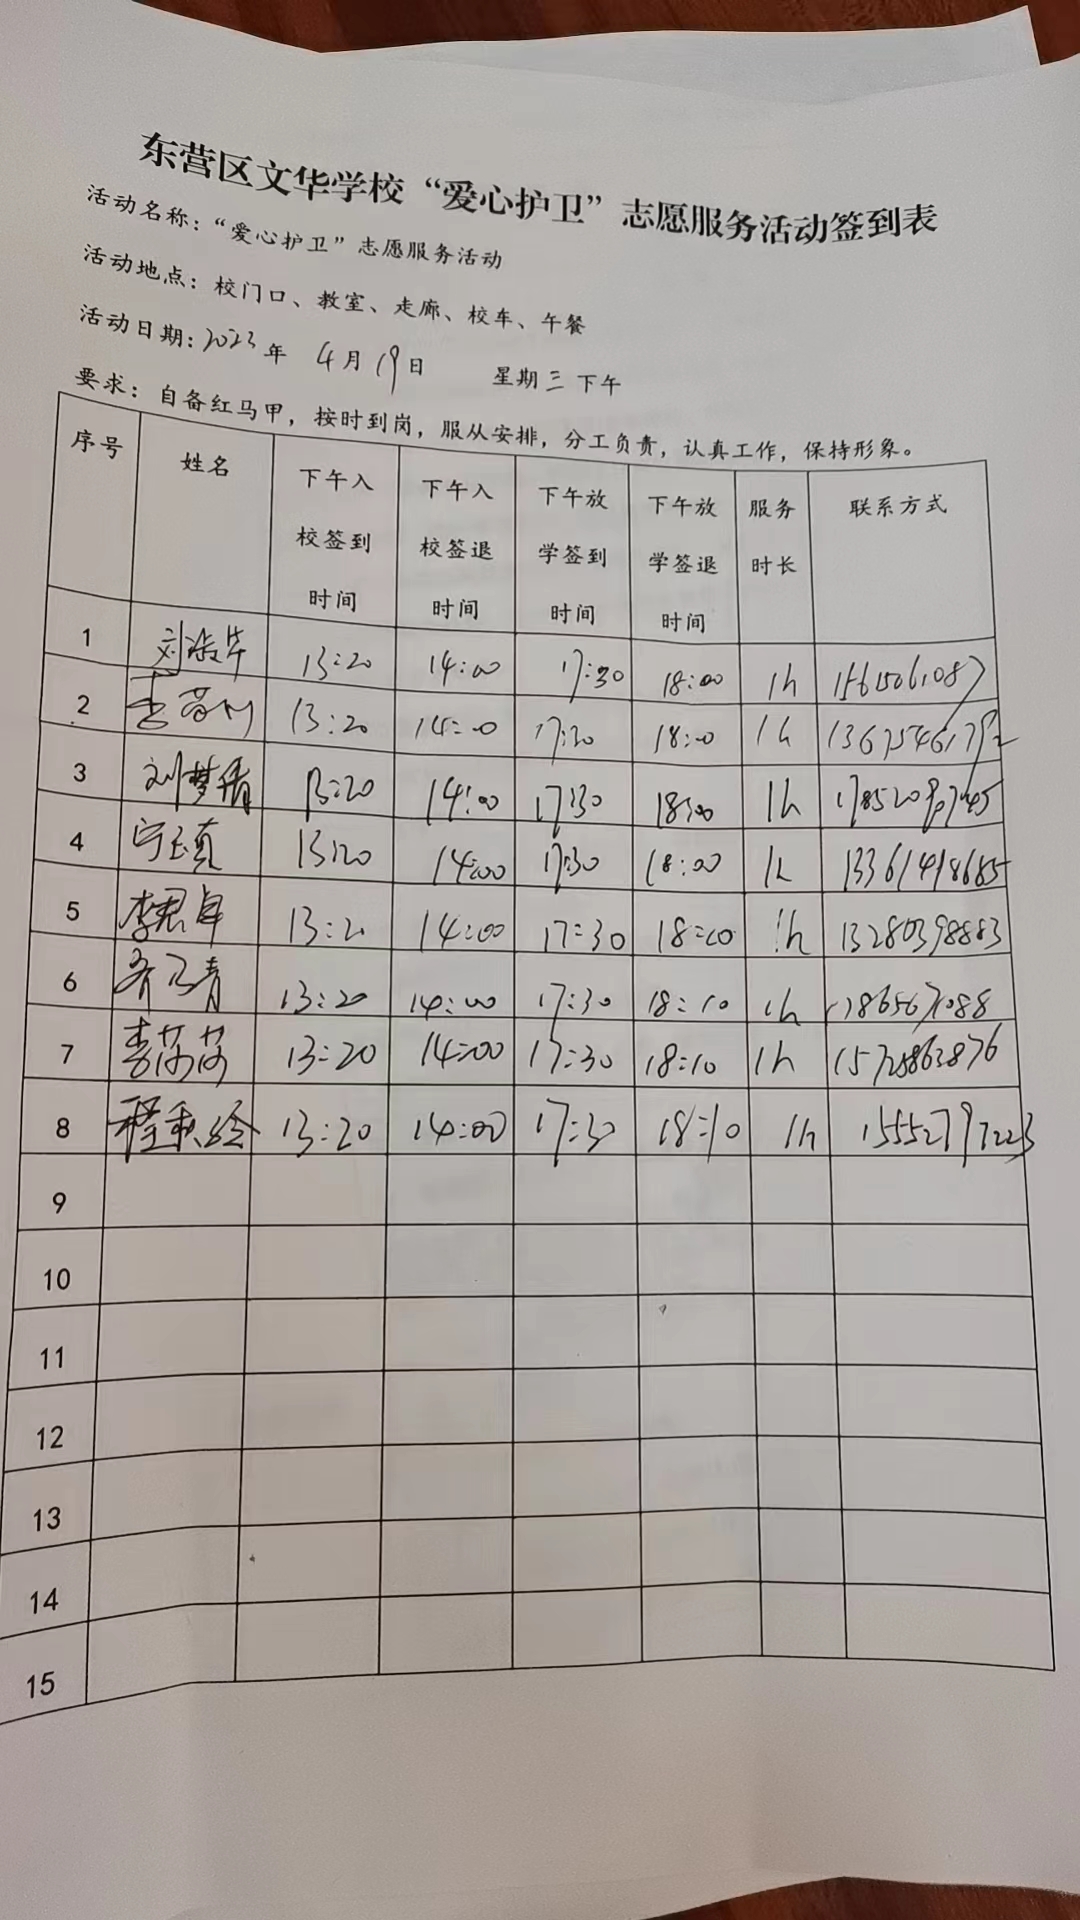 东营区文华学校“爱心护卫”志愿服务活动签到表
活动名称：“爱心护卫”志愿服务活动
活动地点：校门口、教室、走廊、校车、午餐
活动日期：2023年 4月19日 星期三下午
要求：自备红马甲，按时到岗，服从安排，分工负责，认真工作，保持形象。
序号 姓名 下午入校签到时间 下午入校签退时间 下午放学签到时间 下午放学签退时间 服务时长 联系方式
1 13:20 14:00 17:30 18:00 1h 15615061087
2 13:20 14:00 17:30 18:00 1h
3 刘梦倩 13:20 14:00 17:30 18:00 1h
4 宁玉真 13:20 14:00 17:30 18:00 1h 13361418685
5 13:20 14:00 17:30 18:00 1h 13280398883
6 齐乃青 13:20 14:00 17:30 18:10 1h
7 李莎莎 13:20 14:00 17:30 18:10 1h 15725863876
8 13:20 14:00 17:30 18:10 1h 15552797223
9
10
11
12
13
14
15